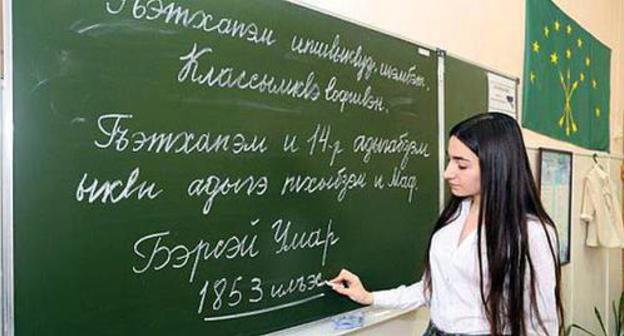 Гъэтхапэм щэмбэт.
Классымкӏэ Ӏофшӏэн.
Гъэтхапэм и 14-р адыгабзэм
ыкӏи адыгэ тхыбзэм и Маф.
Бэрсэй Умар
1853 илъэс